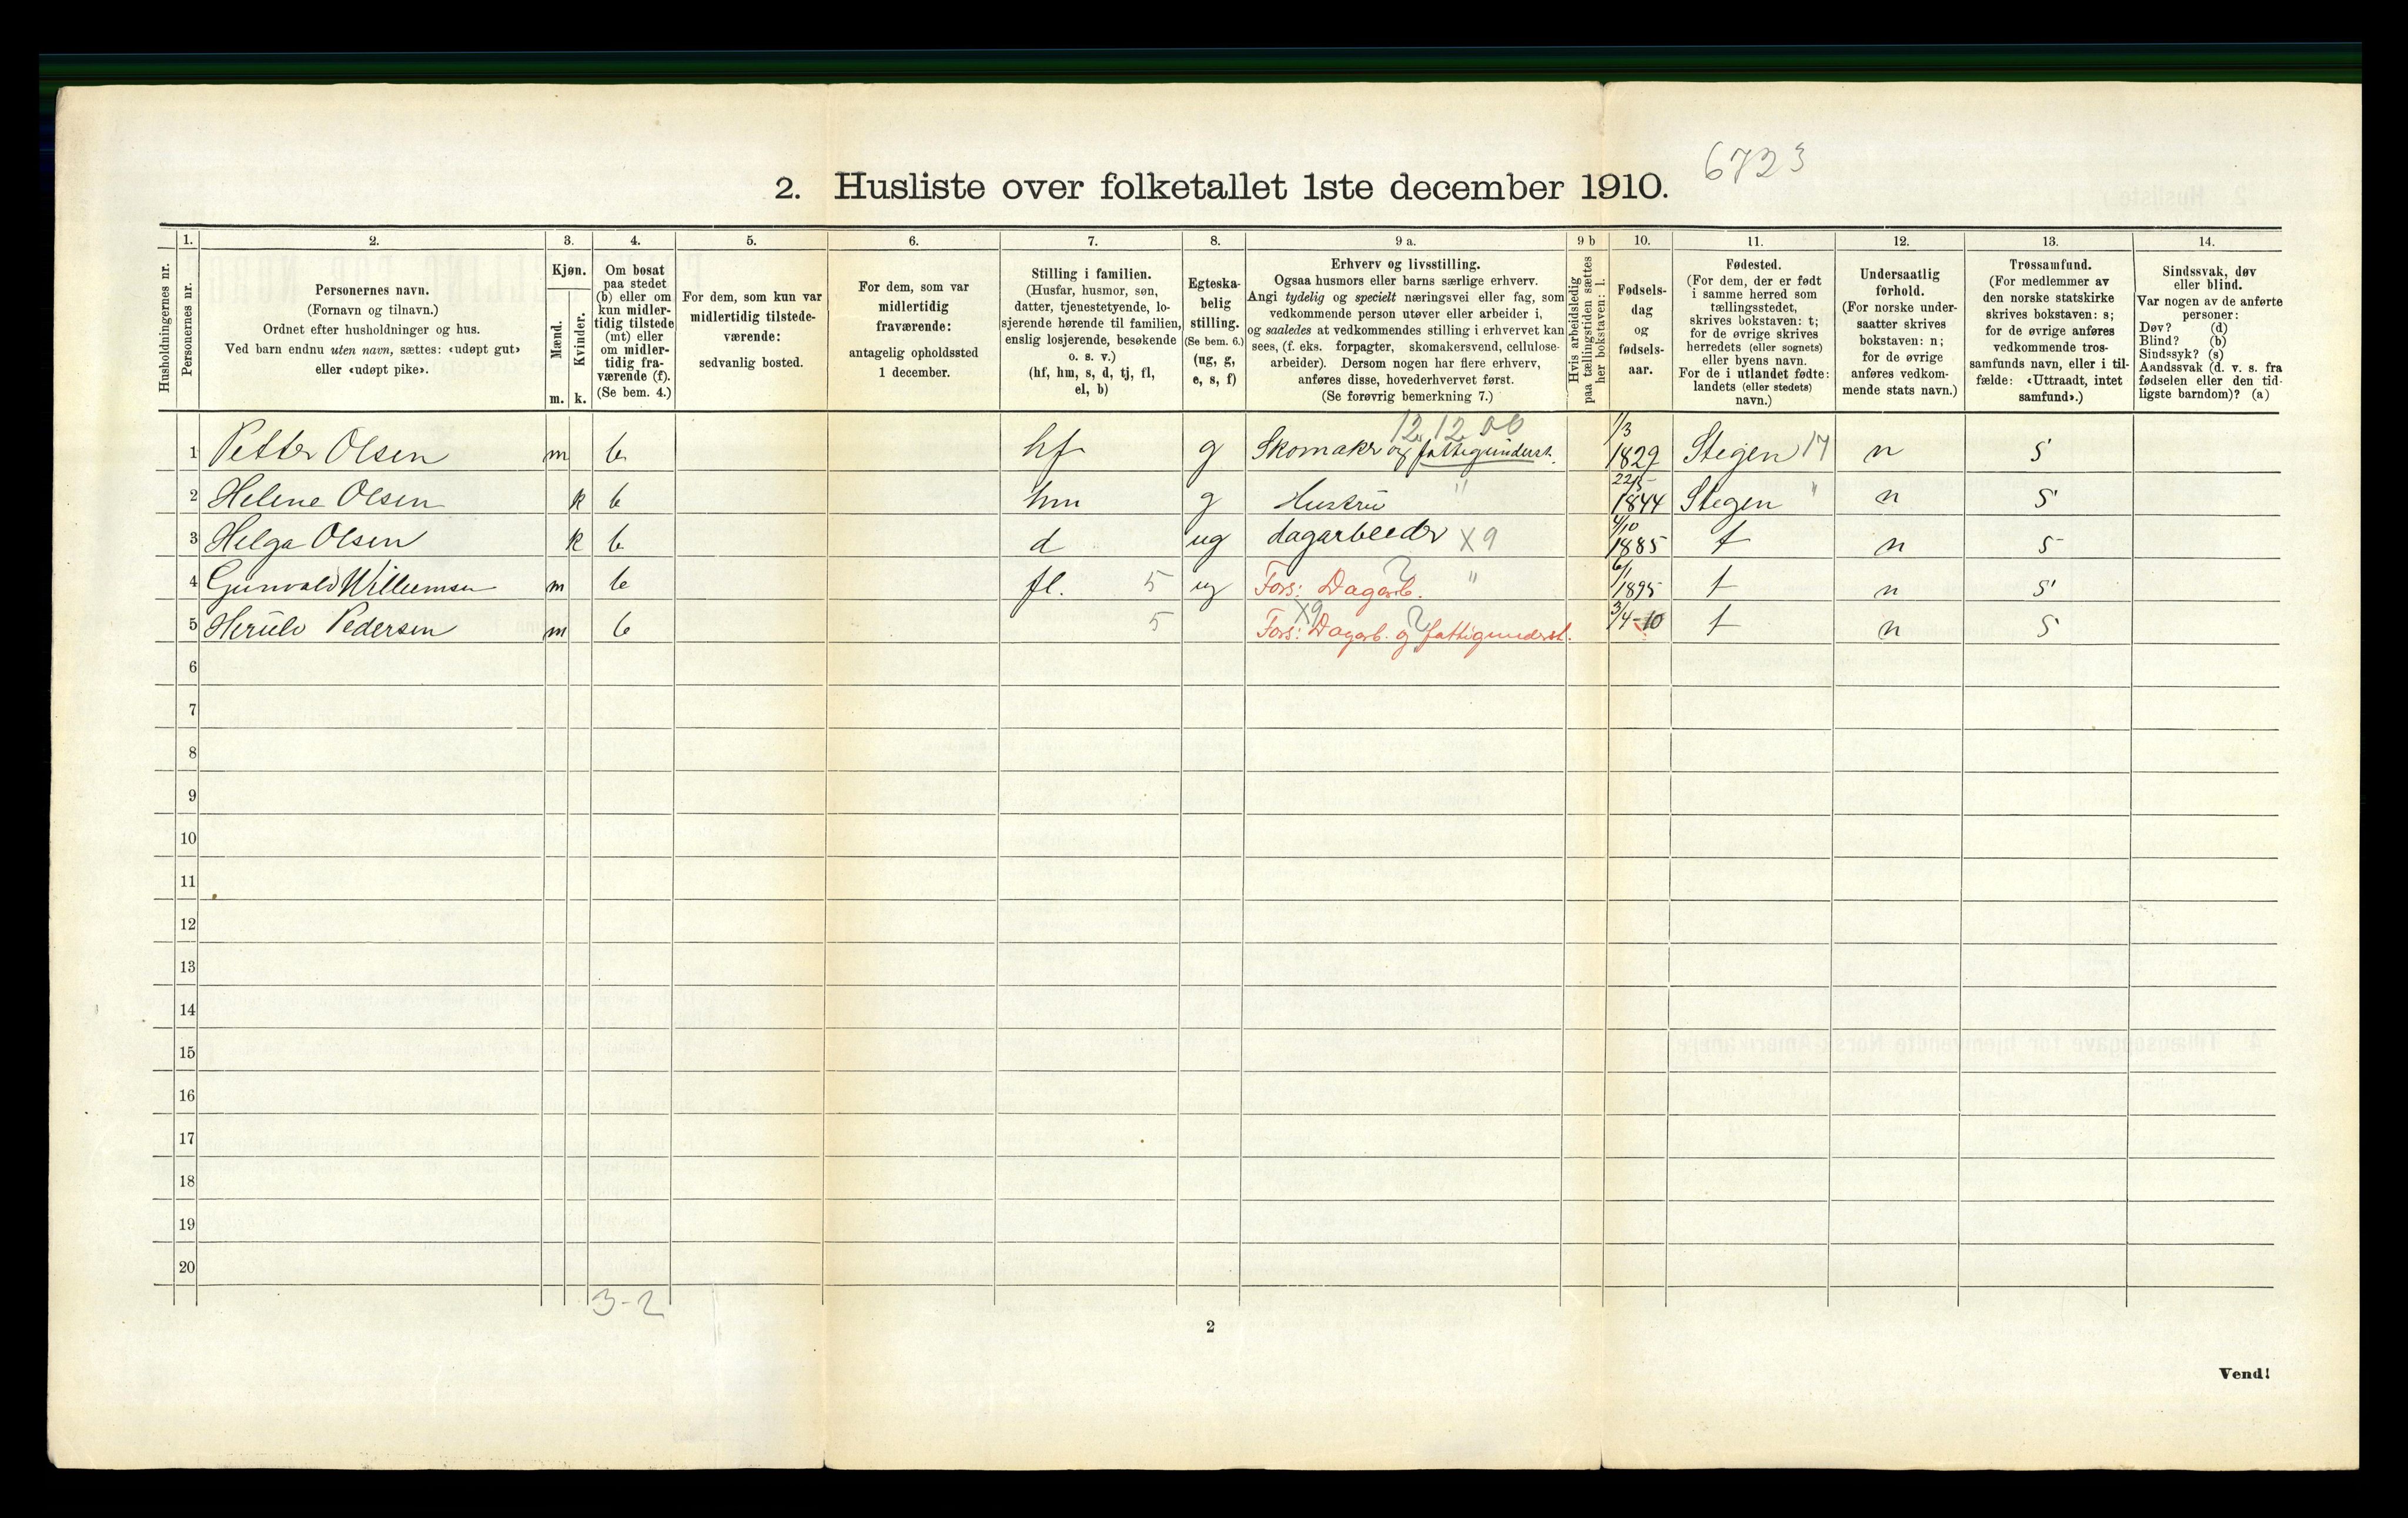 6723
2. Husliste over folketallet 1ste december 1910.
Husholdningernes nr.
1.
Personernes nr.
2.
Personernes navn.
(Fornavn og tilnavn.)
Ordnet efter husholdninger og hus.
Ved barn endnu uten navn, sættes: «udøpt gut»
eller «udøpt pike».
3.
Kjøn.
Mænd.
Kvinder.
m. k.
4.
Om bosat
paa stedet
(b) eller om
kun midler-
tidig tilstede
(mt) eller
om midler-
tidig fra-
værende (f).
(Se bem. 4.)
5.
For dem, som kun var
midlertidig tilstede-
værende:
sedvanlig bosted.
6.
For dem, som var
midlertidig
fraværende:
antagelig opholdssted
1 december.
7.
Stilling i familien.
(Husfar, husmor, søn,
datter, tjenestetyende, lo-
sjerende hørende til familien,
enslig losjerende, besøkende
o. s. v.)
(hf, hm, s, d, tj, fl,
el, b)
8.
Egteska-
belig
stilling.
(Se bem. 6.)
(ug, g,
e, s, f)
9 a.
Erhverv og livsstilling.
Ogsaa husmors eller barns særlige erhverv.
Angi tydelig og specielt næringsvei eller fag, som
vedkommende person utøver eller arbeider i,
og saaledes at vedkommendes stilling i erhvervet kan
sees, (f. eks. forpagter, skomakersvend, cellulose-
arbeider). Dersom nogen har flere erhverv,
anføres disse, hovederhvervet først.
(Se forøvrig bemerkning 7.)
9 b
Hvis arbeidsledig
paa tællingstiden sættes
her bokstaven: l.
10.
Fødsels-
dag
og
fødsels-
aar.
11.
Fødested.
(For dem, der er født
i samme herred som
tællingsstedet,
skrives bokstaven: t;
for de øvrige skrives
herredets (eller sognets)
eller byens navn.
For de i utlandet fødte:
landets (eller stedets)
navn.)
12.
Undersaatlig
forhold.
(For norske under-
saatter skrives
bokstaven: n;
for de øvrige
anføres vedkom-
mende stats navn.)
13.
Trossamfund.
(For medlemmer av
den norske statskirke
skrives bokstaven: s;
for de øvrige anføres
vedkommende tros-
samfunds navn, eller i til-
fælde: «Uttraadt, intet
samfund».)
14.
Sindssvak, døv
eller blind.
Var nogen av de anførte
personer:
Døv? (d)
Blind? (b)
Sindssyk? (s)
Aandssvak (d. v. s. fra
fødselen eller den tid-
ligste barndom)? (a)
12. 12 00
1 Petter Olsen m b hf g Skomaker og fattigunderst. 1/3 1829 Stegen 17 n s
2 Helene Olsen k b hm g Hustru " 22/5 1844 Stegen " n s
3 Helga Olsen k b d ug dagarbeeder X9 4/10 1885 t n s
4 Gunvald Willumsen m b fl. 5 ug Fors: Dagarb. " 6/1 1895 t n s
5 Herulv Pedersen m b 5 X9 Fors: Dagarb. og fattigunderst. 3/4-10 t n s
6
7
8
9
10
11
12
13
14
15
16
17
18
19
20
3-2
2
Vend!